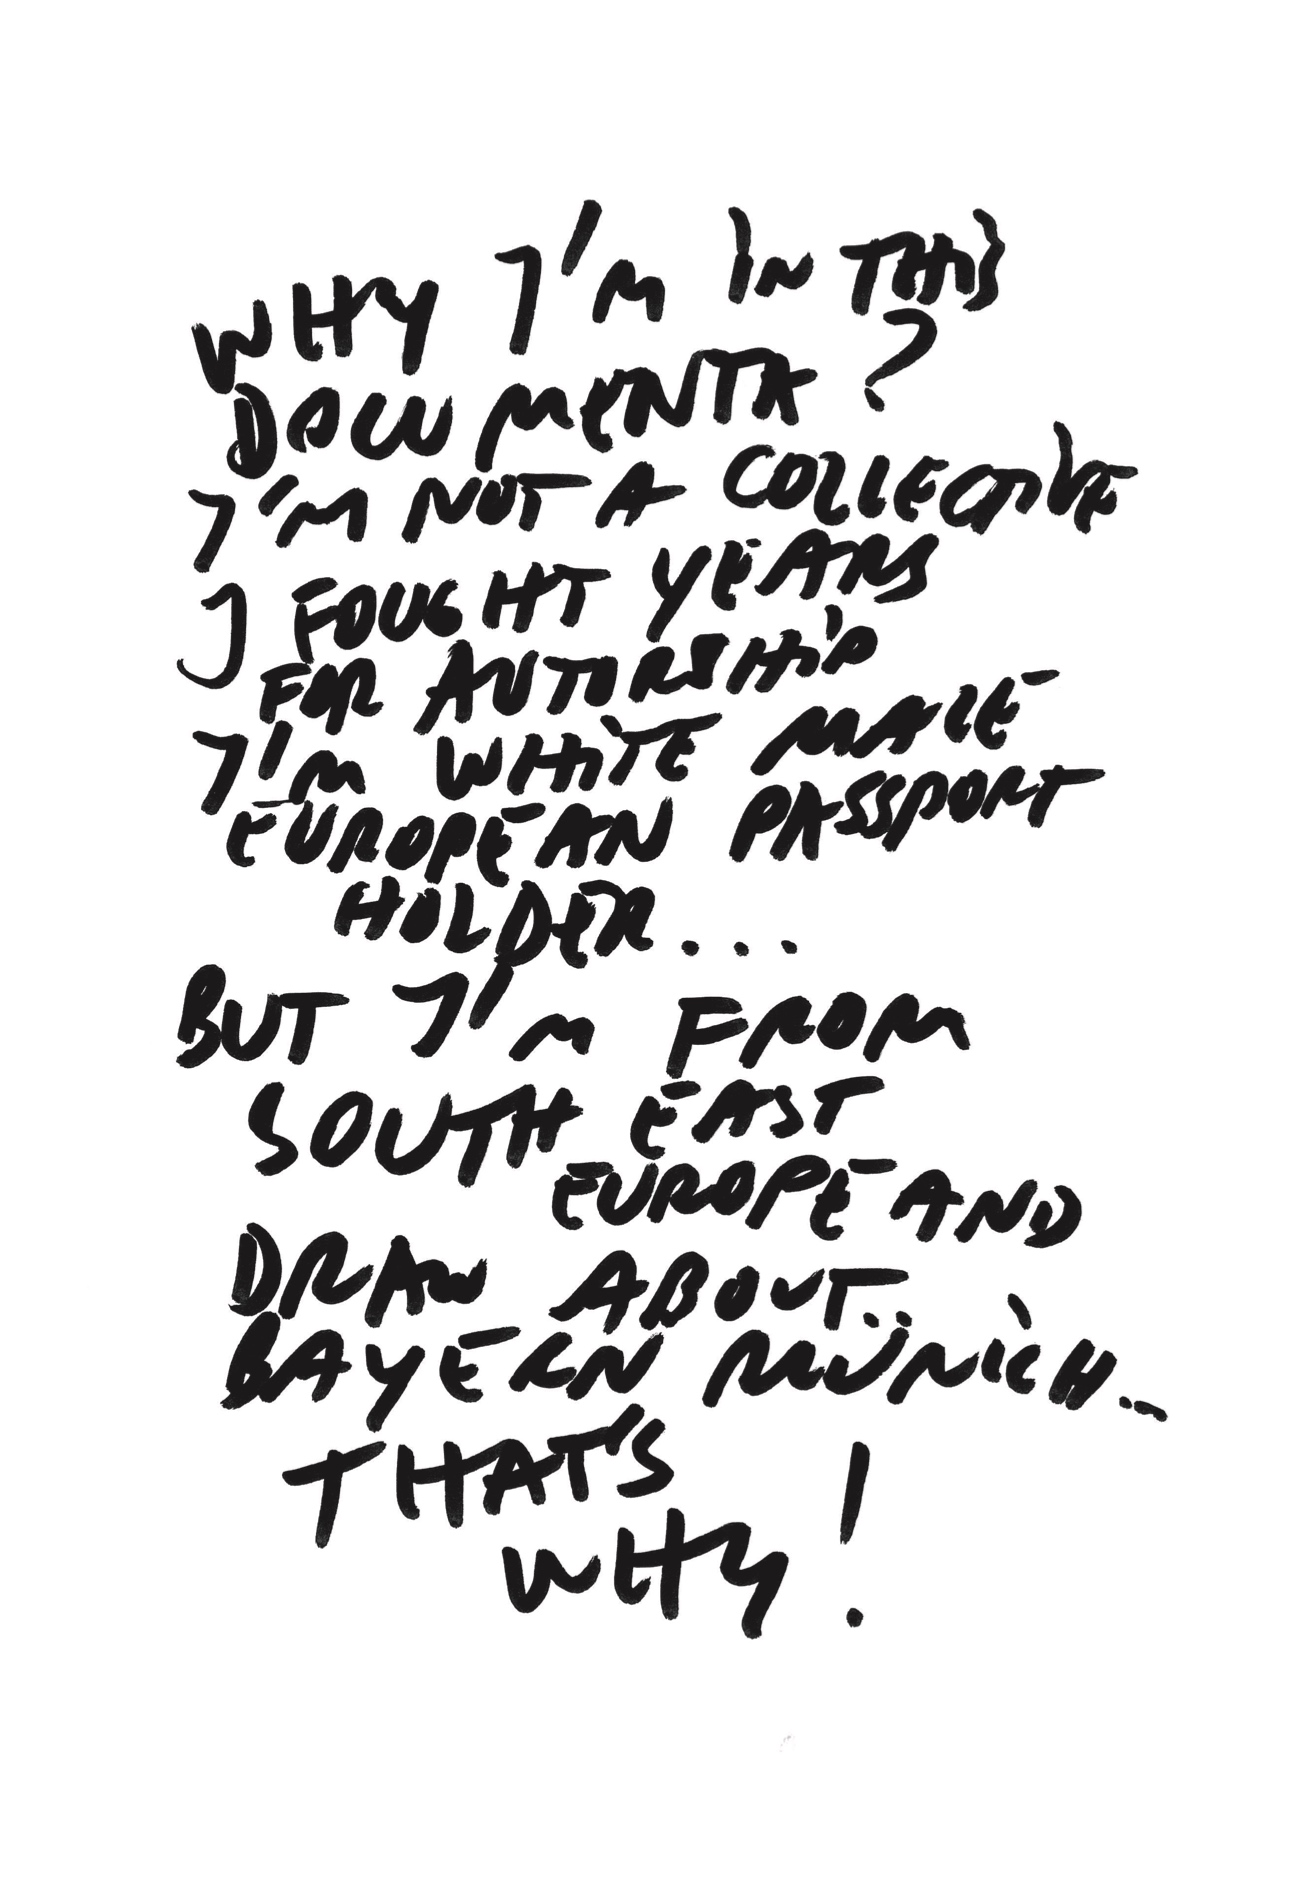 WHY I'M IN THIS
DOCUMENTA?
I'M NOT A COLLECTIVE
I FOUGHT YEARS
FOR AUTORSHIP
I'M WHITE MALE
EUROPEAN PASSPORT
HOLDER...
BUT I'M FROM
SOUTH EAST
EUROPE AND
DRAW ABOUT..
BAYERN MÜNICH...
THAT'S
WHY!